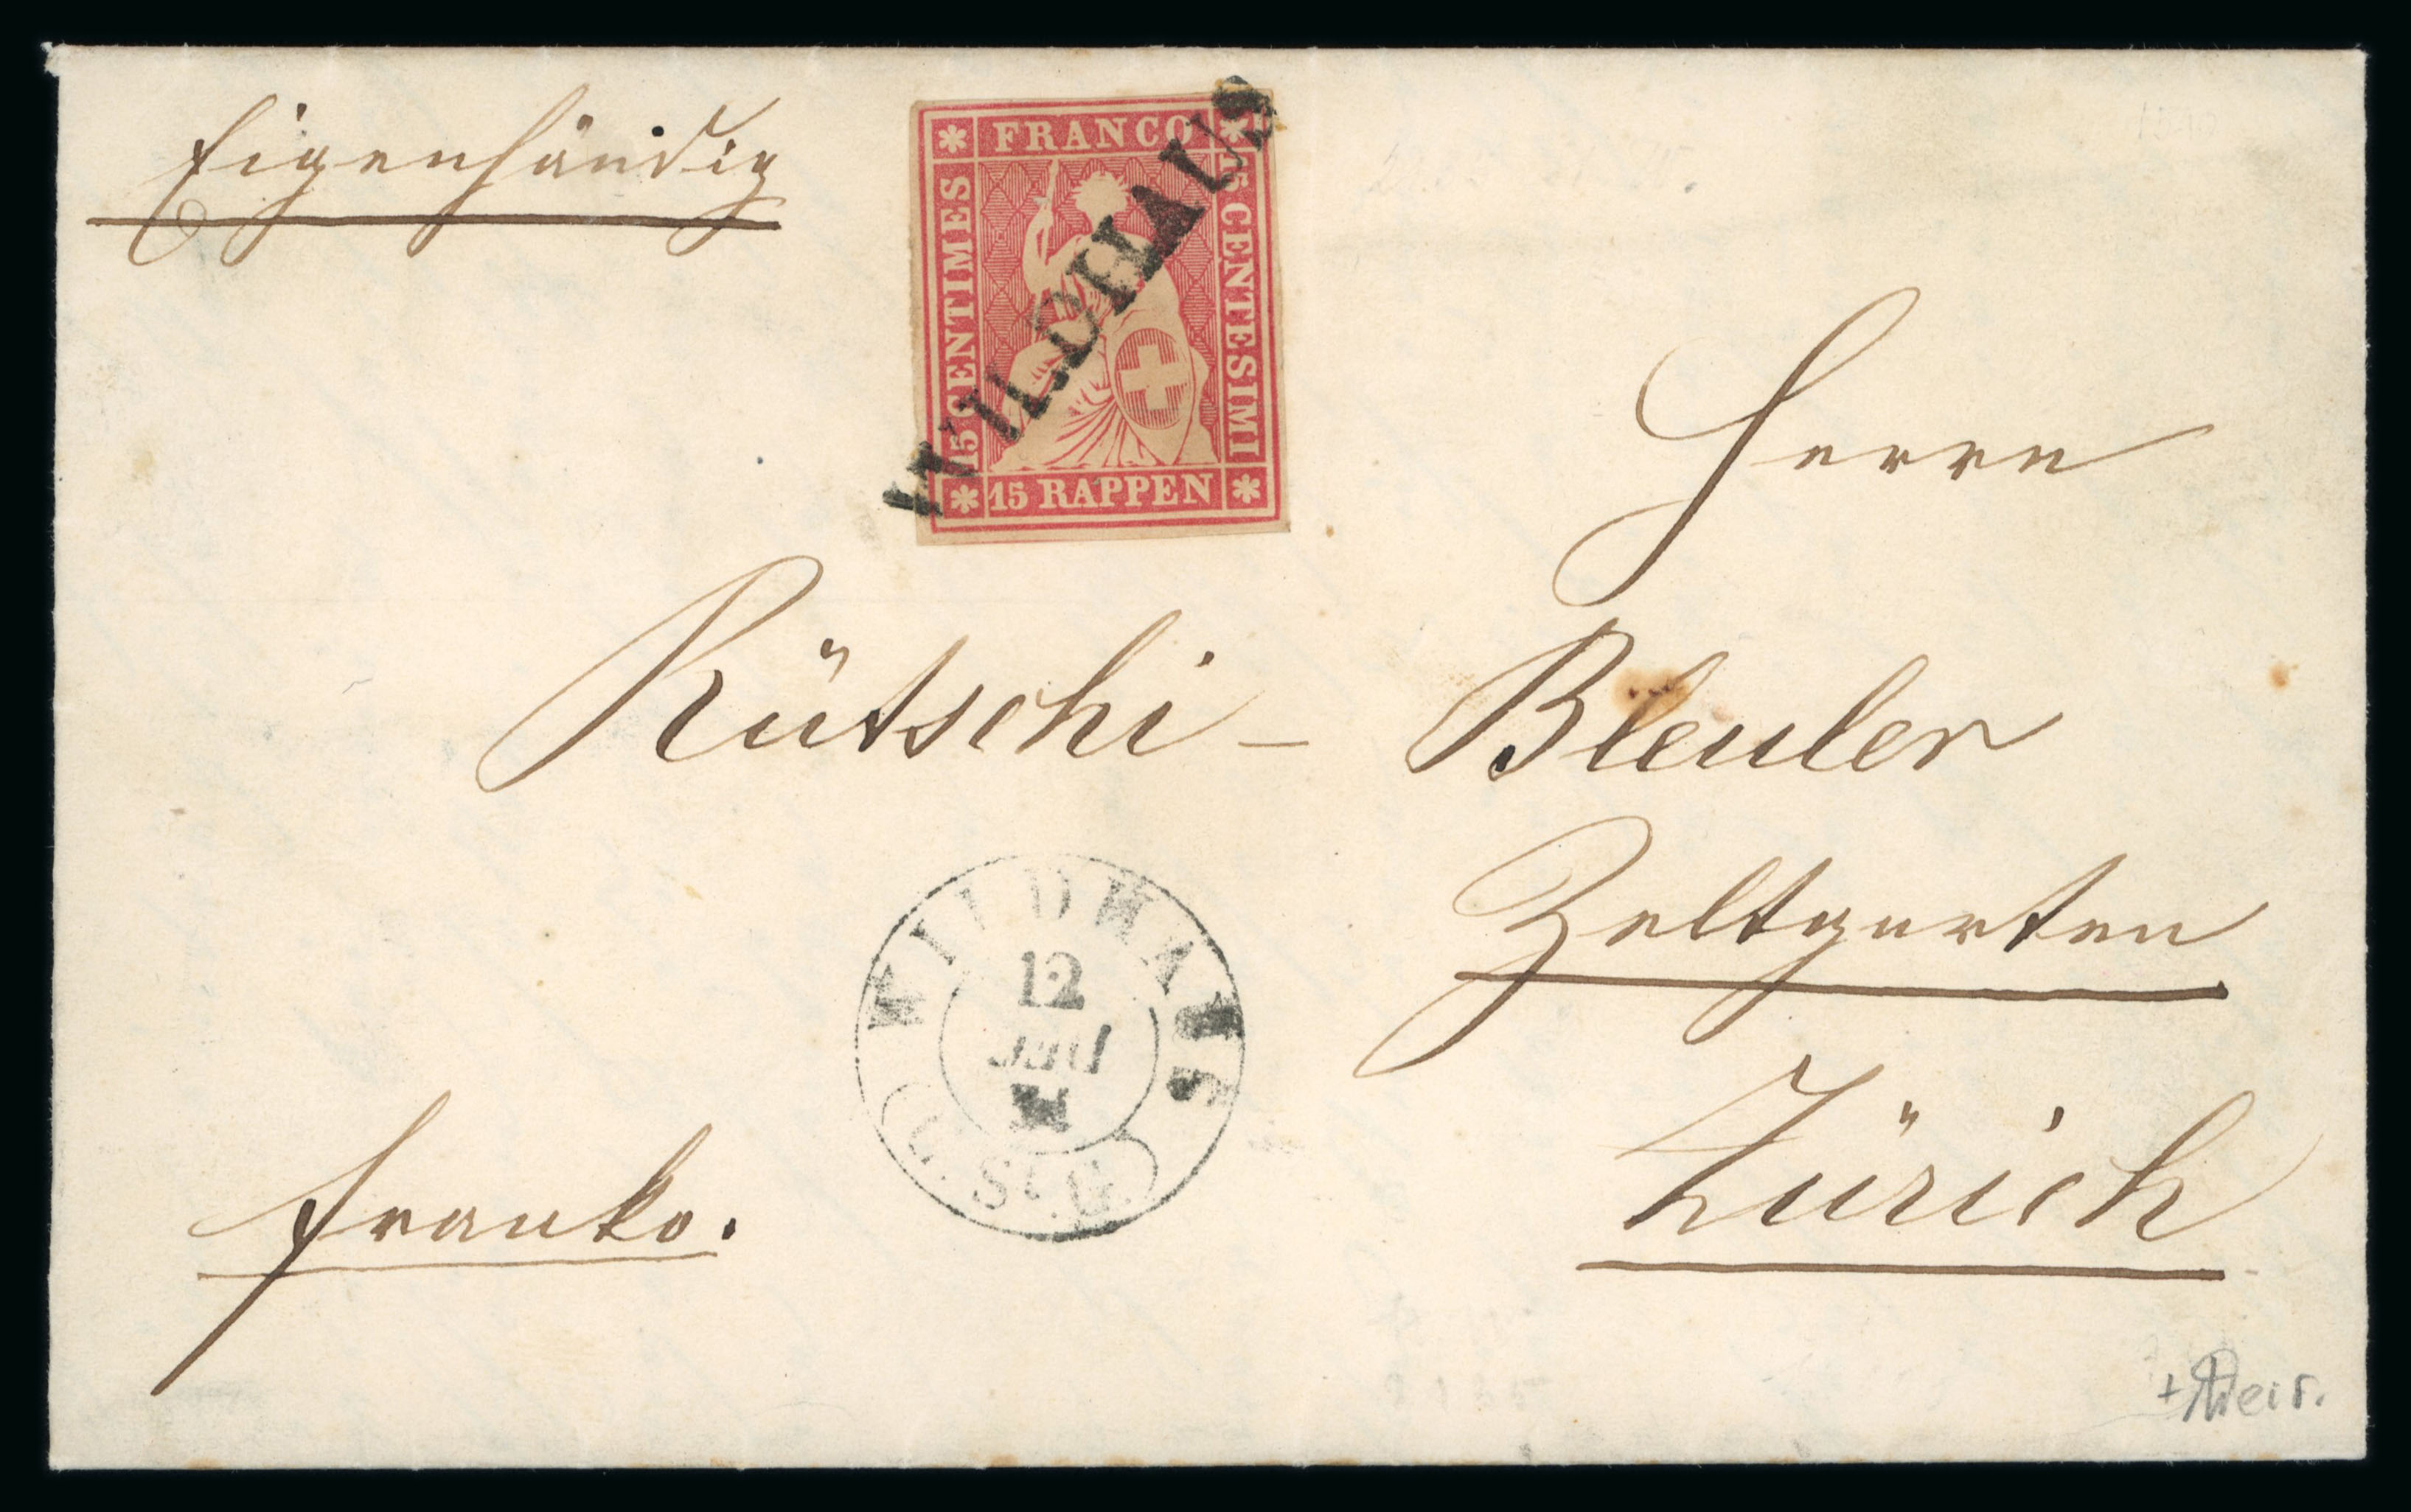 Eigenhändig
FRANCO
15 CENTIMES
15 CENTESIMI
15 RAPPEN
WILDHAUS
Herrn
Rütschi - Bleuler
Zeltgarten
Zürich
WILDHAUS
12
(C. St. G.)
franko.